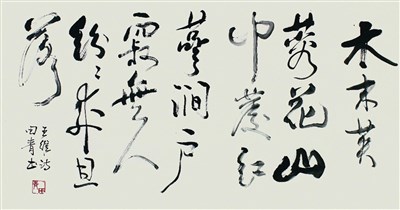 木末芙
蓉花山
中發红
萼澗户
寂無人
纷々开且
落
王維诗
田青书